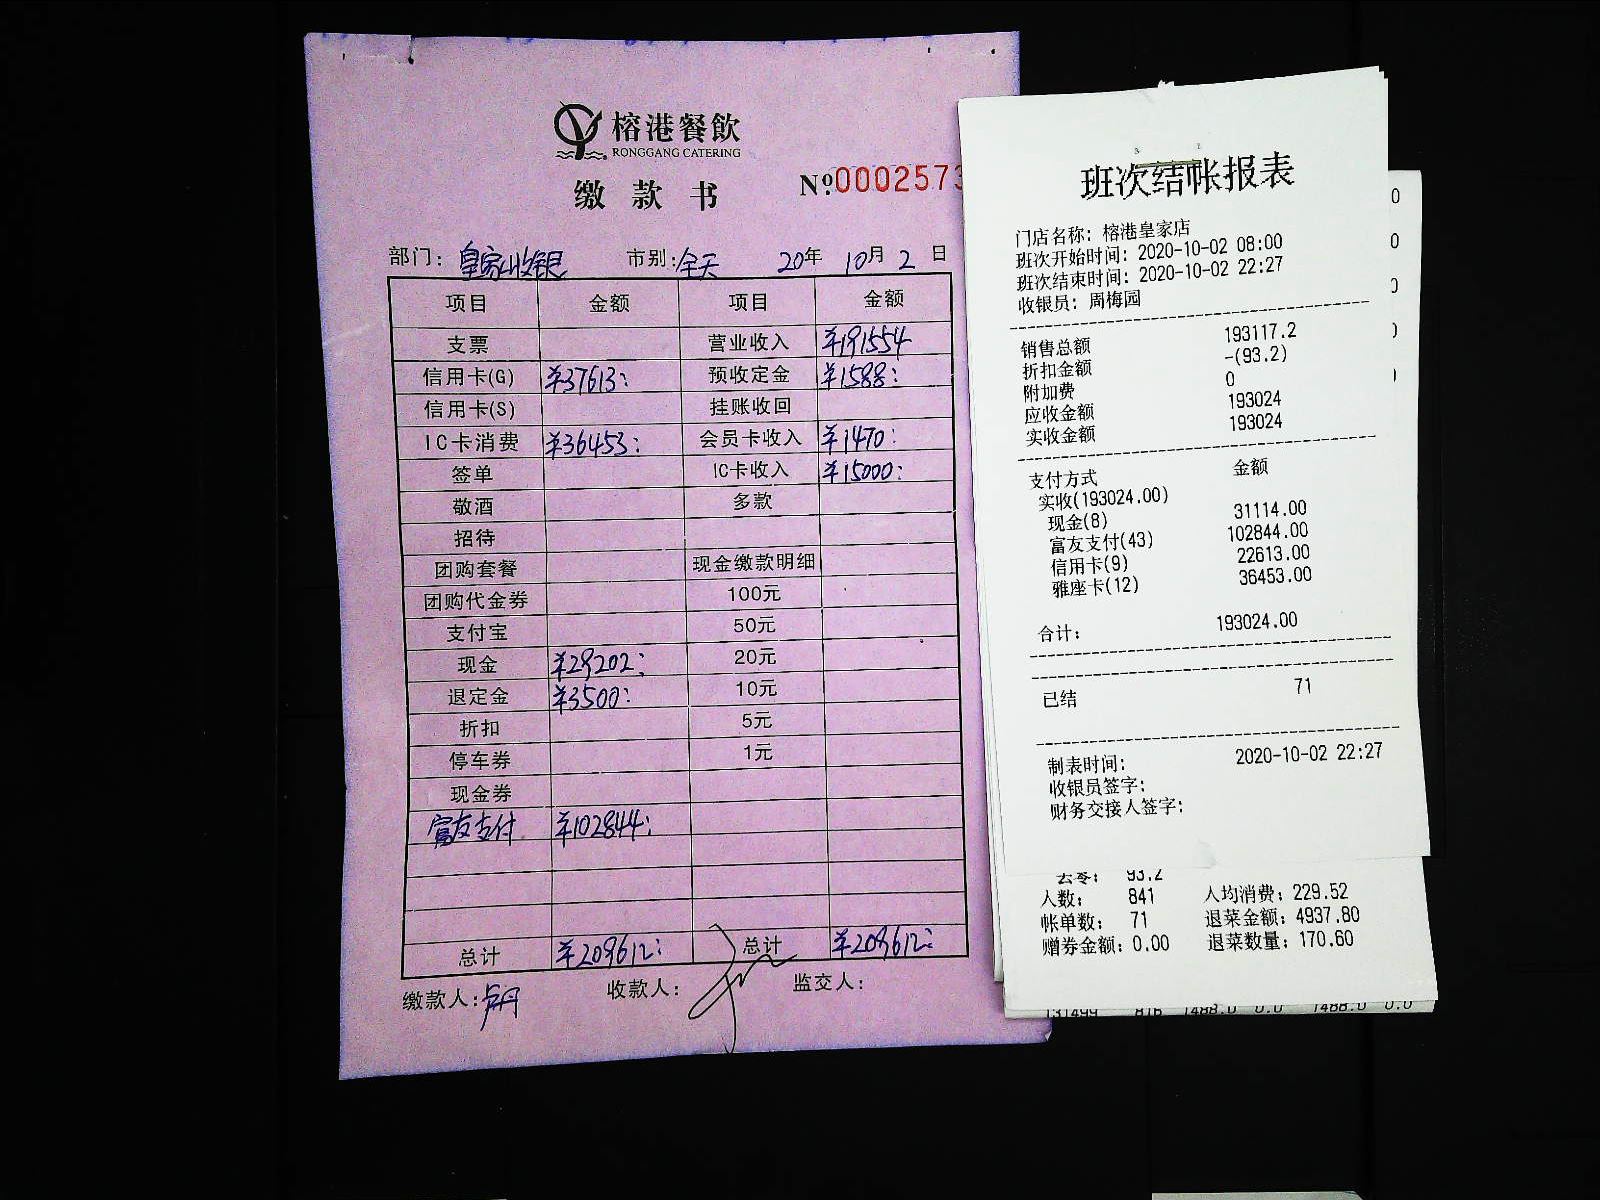 榕港餐飲
RONGGANG CATERING
缴款书
Nº:0002573
部门: 皇家收银 市别: 全天 20年 10月 2日
项目 金额 项目 金额
支票 营业收入 ¥191554
信用卡(G) ¥37613: 预收定金 ¥1588:
信用卡(S) 挂账收回
IC卡消费 ¥36453: 会员卡收入 ¥1470:
签单 IC卡收入 ¥15000:
敬酒 多款
招待
团购套餐 现金缴款明细
团购代金券 100元
支付宝 50元
现金 ¥29202: 20元
退定金 ¥3500: 10元
折扣 5元
停车券 1元
现金券
富友支付 ¥102844:
总计 ¥209612: 总计 ¥209612:
缴款人: 收款人: 监交人:
班次结帐报表
门店名称: 榕港皇家店
班次开始时间: 2020-10-02 08:00
班次结束时间: 2020-10-02 22:27
收银员: 周梅园
销售总额 193117.2
折扣金额 -(93.2)
附加费 0
应收金额 193024
实收金额 193024
支付方式 金额
实收(193024.00)
现金(8) 31114.00
富友支付(43) 102844.00
信用卡(9) 22613.00
雅座卡(12) 36453.00
合计: 193024.00
已结 71
制表时间: 2020-10-02 22:27
收银员签字:
财务交接人签字:
去零: 93.2
人数: 841 人均消费: 229.52
帐单数: 71 退菜金额: 4937.80
赠券金额: 0.00 退菜数量: 170.60
131499 816 1488.0 0.0 1488.0 0.0